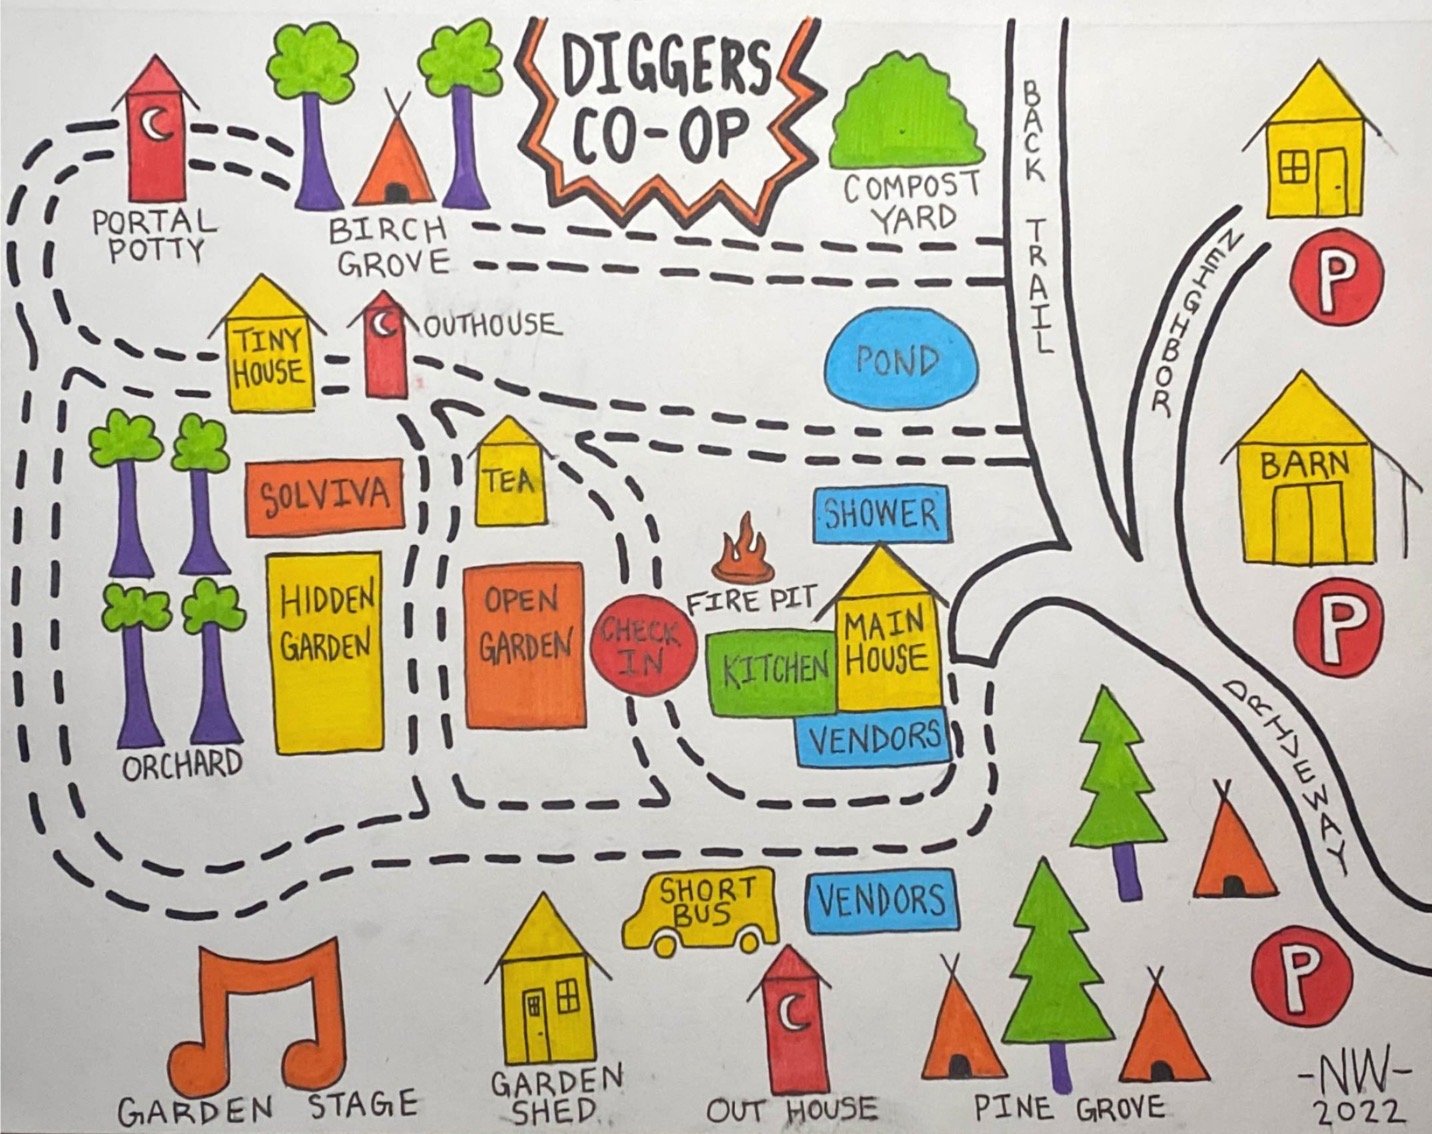 DIGGERS
CO-OP
COMPOST
YARD
BACK TRAIL
PORTAL
POTTY
BIRCH
GROVE
NEIGHBOR
P
TINY
HOUSE
OUTHOUSE
POND
TEA
SOLVIVA
SHOWER
BARN
HIDDEN
GARDEN
OPEN
GARDEN
CHECK
IN
FIRE PIT
KITCHEN
MAIN
HOUSE
VENDORS
P
ORCHARD
DRIVEWAY
SHORT
BUS
VENDORS
P
GARDEN STAGE
GARDEN
SHED
OUT HOUSE
PINE GROVE
-NW-
2022